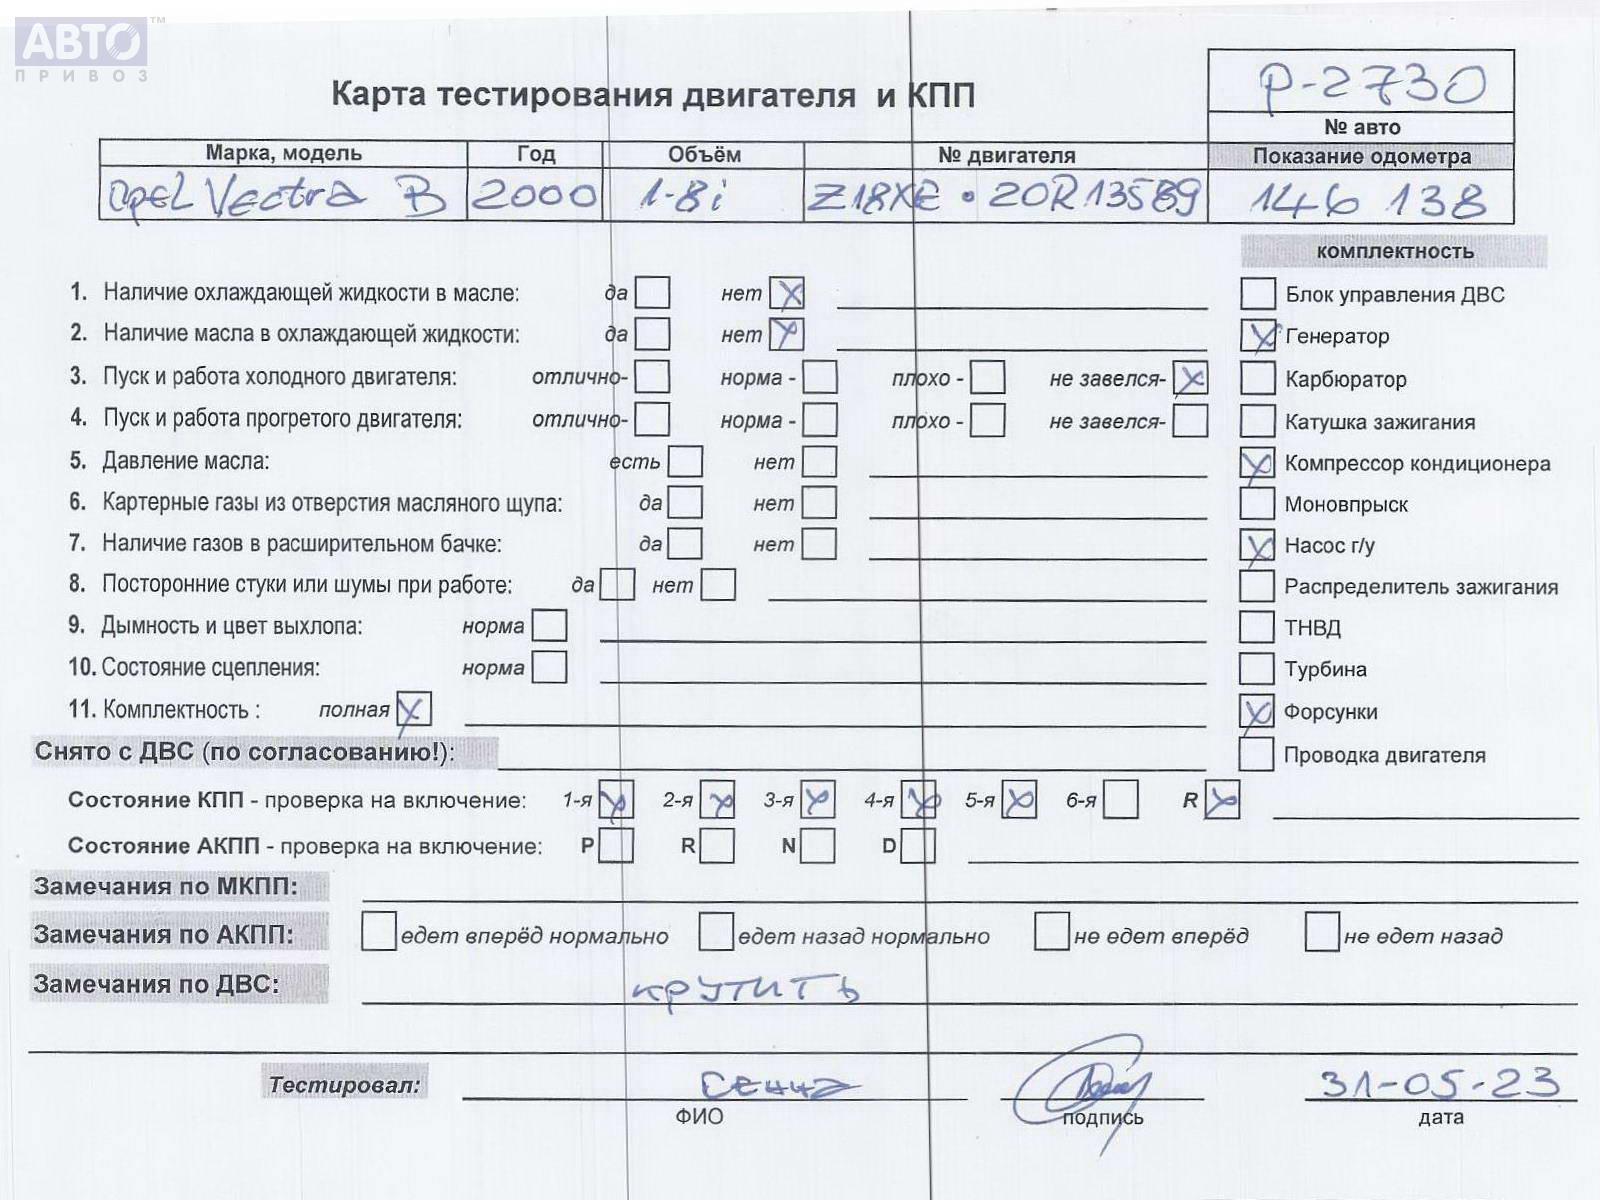 АВТО™
ПРИВОЗ
Карта тестирования двигателя и КПП
P-2730
№ авто
Марка, модель Год Объём № двигателя Показание одометра
Opel Vectra B 2000 1-8i Z18XE • 20R13589 146 138
комплектность
1. Наличие охлаждающей жидкости в масле: да нет X Блок управления ДВС
2. Наличие масла в охлаждающей жидкости: да нет X X Генератор
3. Пуск и работа холодного двигателя: отлично- норма - плохо - не завелся- X Карбюратор
4. Пуск и работа прогретого двигателя: отлично- норма - плохо - не завелся- Катушка зажигания
5. Давление масла: есть нет X Компрессор кондиционера
6. Картерные газы из отверстия масляного щупа: да нет Моновпрыск
7. Наличие газов в расширительном бачке: да нет X Насос г/у
8. Посторонние стуки или шумы при работе: да нет Распределитель зажигания
9. Дымность и цвет выхлопа: норма ТНВД
10. Состояние сцепления: норма Турбина
11. Комплектность : полная X X Форсунки
Снято с ДВС (по согласованию!): Проводка двигателя
Состояние КПП - проверка на включение: 1-я X 2-я X 3-я X 4-я X 5-я X 6-я R X
Состояние АКПП - проверка на включение: P R N D
Замечания по МКПП:
Замечания по АКПП: едет вперёд нормально едет назад нормально не едет вперёд не едет назад
Замечания по ДВС: крутить
Тестировал: 31-05-23
ФИО подпись дата